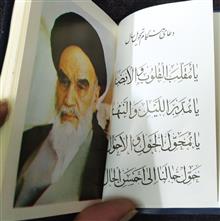 دعای هنگام تحویل سال
يا مُقَلِّبَ الْقُلُوبِ وَالْاَبْصا
يا مُدَبِّرَ اللَّيْلِ وَالنَّها
يا مُحَوِّلَ الْحَوْلِ وَالْاَحْو
حَوِّلْ حالَنا اِلى اَحْسَنِ الْحال